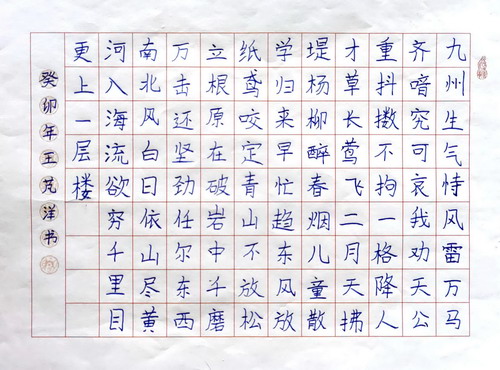 九州生气恃风雷万马
齐喑究可哀我劝天公
重抖擞不拘一格降人
才草长莺飞二月天拂
堤杨柳醉春烟儿童散
学归来早忙趁东风放
纸鸢咬定青山不放松
立根原在破岩中千磨
万击还坚劲任尔东西
南北风白日依山尽黄
河入海流欲穷千里目
更上一层楼
癸卯年王芃洋书